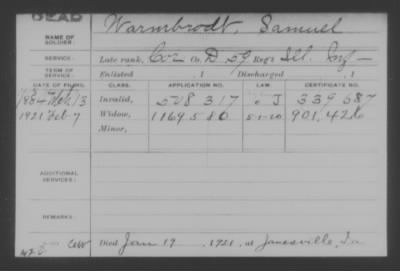 DEAD
NAME OF SOLDIER: Warmbrodt, Samuel
SERVICE: Late rank, Cor Co. D 59 Reg't Ill. Inf
TERM OF SERVICE: Enlisted , 1 Discharged , 1
DATE OF FILING. CLASS. APPLICATION NO. LAW. CERTIFICATE NO.
1884 Invalid, 508 317 J 339 687
1921 Feb 7 Widow, 1169580 5-1-20 901,420
Minor,
ADDITIONAL SERVICES:
REMARKS:
CW Died Jan 19 1921, at Janesville, Ia